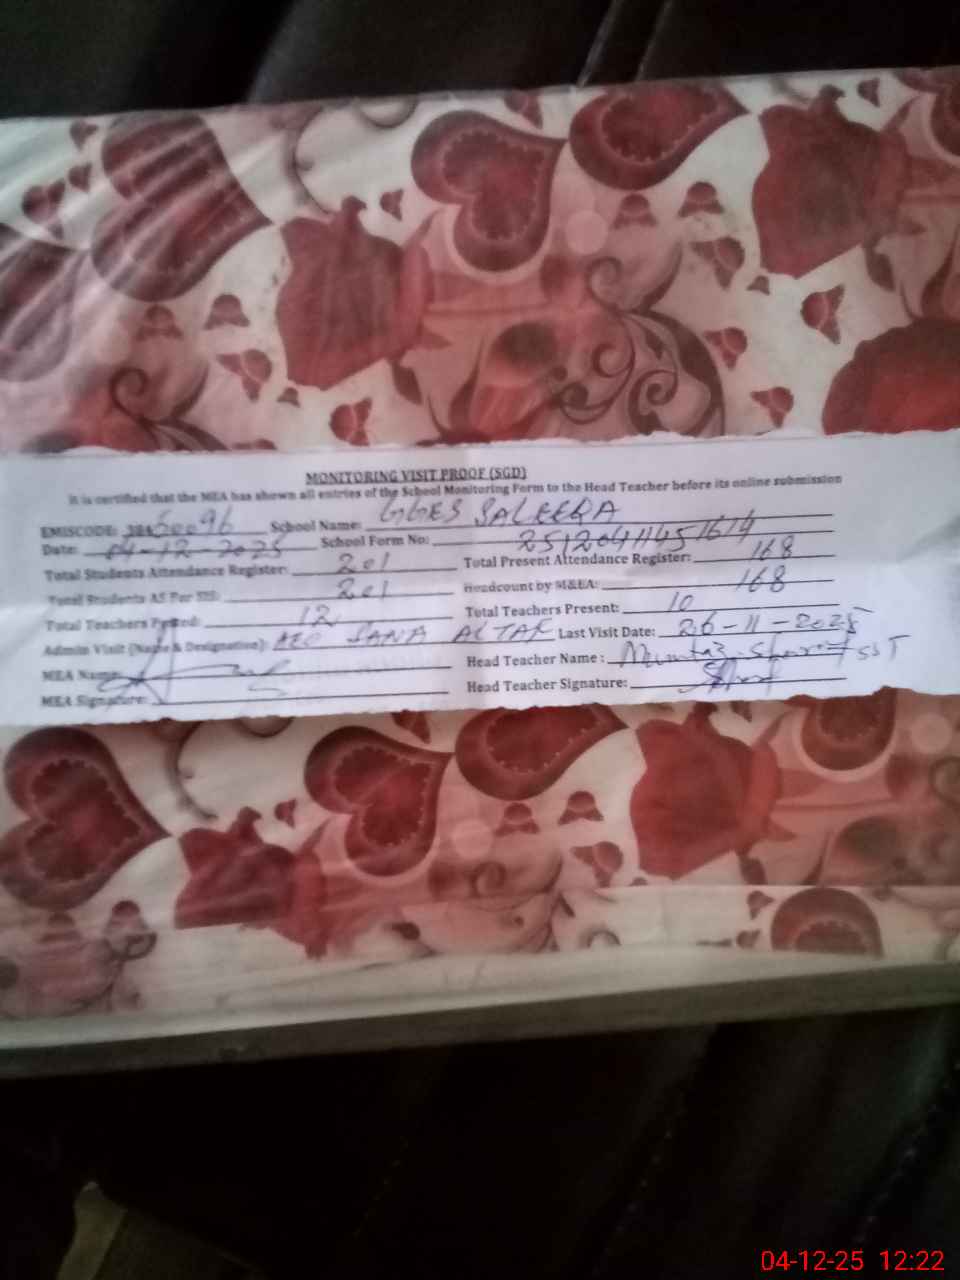 MONITORING VISIT PROOF (SGD)
It is certified that the MEA has shown all entries of the School Monitoring Form to the Head Teacher before its online submission
EMISCODE: 38450096 School Name: GGES SALEERA
Date: 04-12-2025 School Form No: 25120411451614
Total Students Attendance Register: 201 Total Present Attendance Register: 168
Total Students AS Per SIS: 201 Headcount by M&EA: 168
Total Teachers Posted: 12 Total Teachers Present: 10
Admin Visit (Name & Designation): AEO SANA ALTAF Last Visit Date: 26-11-2025
MEA Name: Head Teacher Name: Mumtaz Sharif SST
MEA Signature: Head Teacher Signature:
04-12-25 12:22